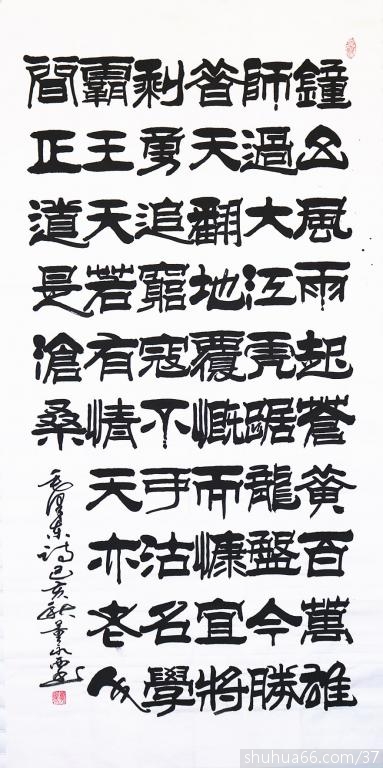 鐘山風雨起蒼黃百萬雄
師過大江虎踞龍盤今勝
昔天翻地覆慨而慷宜將
剩勇追窮寇不可沽名學
霸王天若有情天亦老人
間正道是滄桑
毛澤東詩己亥秋
shuhua66.com/37